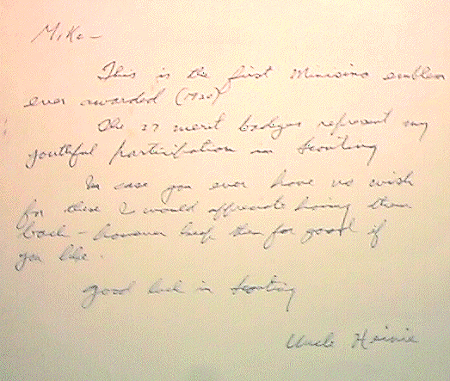 Mike -
This is the first Minisino emblem
ever awarded (1920)
The 27 merit badges represent my
youthful participation in Scouting
In case you ever have no wish
for these I would appreciate having them
back - however keep them for good if
you like.
Good luck in Scouting
Uncle Heinie